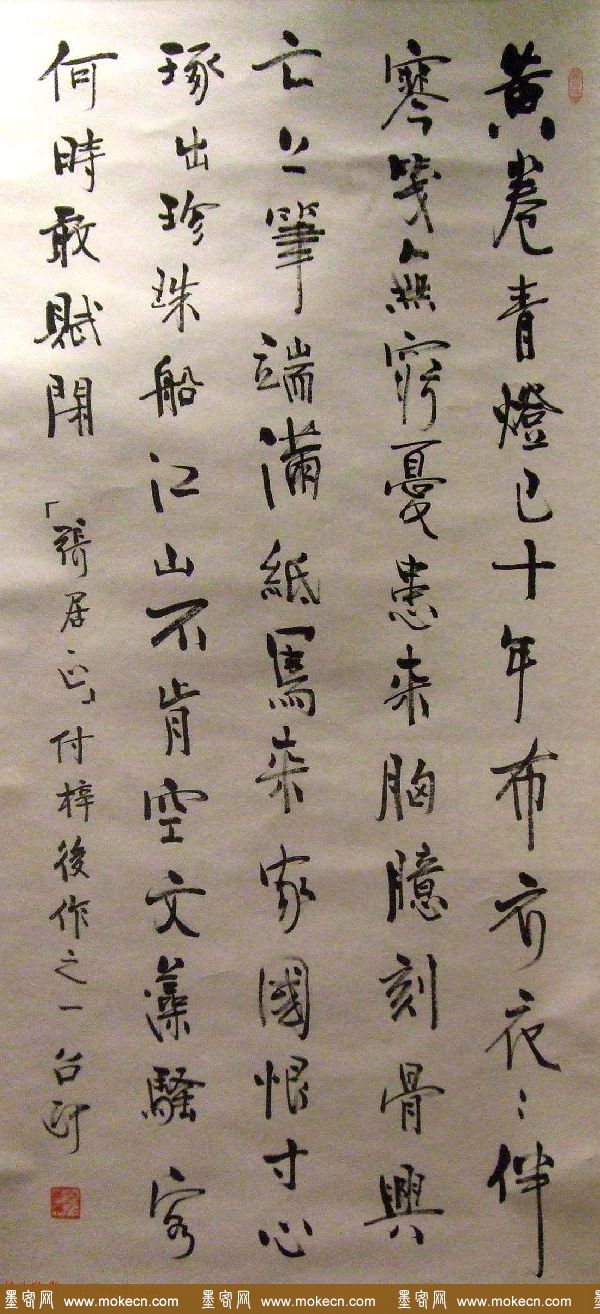 黄卷青燈已十年布衣夜〻伴
寒箋無窮憂患来胸臆刻骨興
亡上筆端滿紙寫来家國恨寸心
琢出珍珠船江山不肯空文藻騷客
何時敢賦閑
「張居正」付梓後作之一 召政
墨客网 www.mokecn.com 墨客网 www.mokecn.com 墨客网 www.mokecn.com